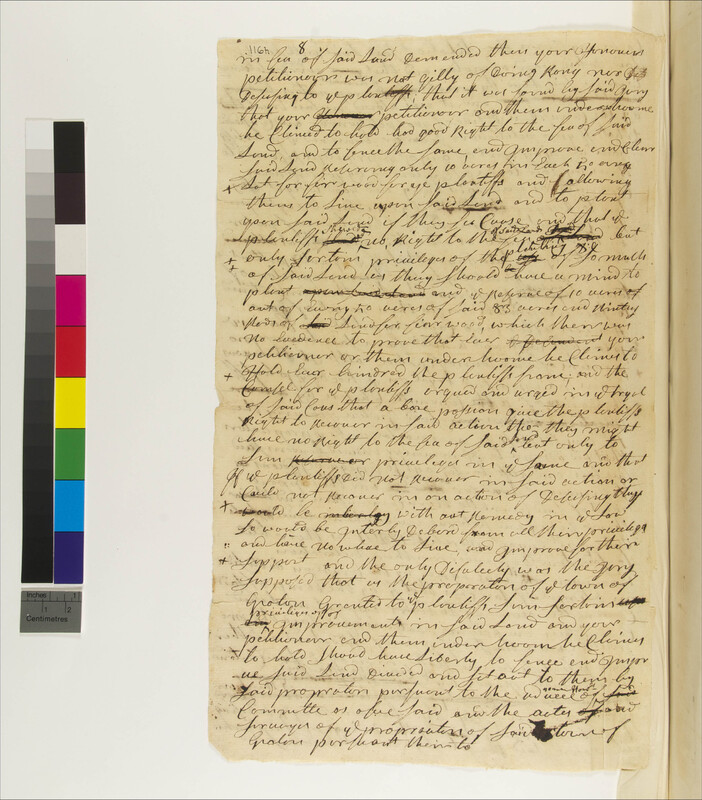 1164. 8
in fea of said Land Demended then your Honouers
petitioneurs was not gilly of Doing Rong nor
Desesing to ye plentifs that it was found by said Jury
that your petitioneur and them under whome
he Claimed to hold had good Right to the fea of said
Land, and to fence the same and Improve and Clear
said Land Reserving only 10 acres in Each 50 acre
Lot for fier wood for ye plentifs and allowing
them to Live upon said Land and to plant
upon said Land if they se Cause and that ye
plentifs had no Right to the fea but
only sertin privileges of the of so much
of said Land as they should have a mind to
plant and ye Reserve of 10 acres of
out of every 50 acres of said 83 acres and Ninty
Rods of Land for fier wood, which there was
No Evedence to prove that Ever your
petitioneur or them under whome he Claimes to
Hold Ever hindred the plentifs from, and the
Counsel for ye plentifs argued and urged in ye tryal
of said Caus that a bare possion gave the plentifs
Right to Recover in said action tho they might
have no Right to the fea of said Land but only to
sum privileges in ye same and that
if ye plentifs Did not Recover in said action or
Could not Recover in an action of Desesing they
would be with out Remedy in ye Law
so would be utterly Debard from all there privileges
and have no whare to Live and Improve for their
Support and the only Dificlety was the Jury
Supposed that as the propraters of ye town of
Groton Granted to ye plentifs sum sertin
privileges of
Improvements in said Land and your
petitioneur and them under whom he Claimes
to hold should have Liberty to fence and Improve
said Land Devided and set out to them by
said propraters pursuant to the advice of
Committe as afore said and the actes and
Surveyes of ye propriators of said town of
Groton pursuant them to